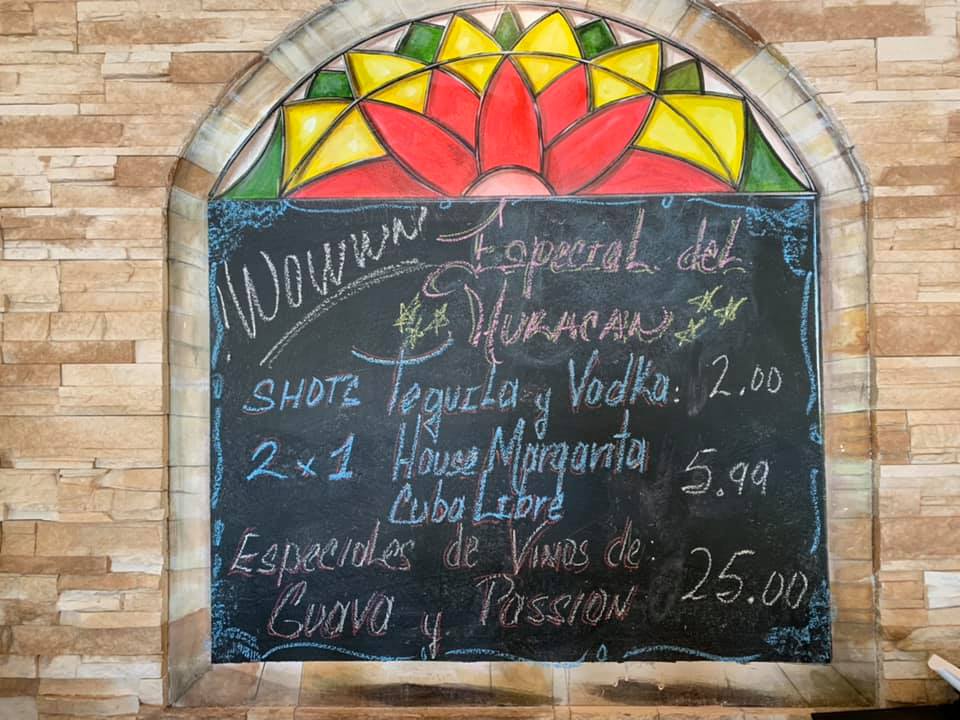 ¡Wowww!
Especial del
HURACAN
SHOTS Tequila y Vodka: 2.00
2x1 House Margarita 5.99
Cuba Libre
Especiales de Vinos de:
Guava y Passion 25.00